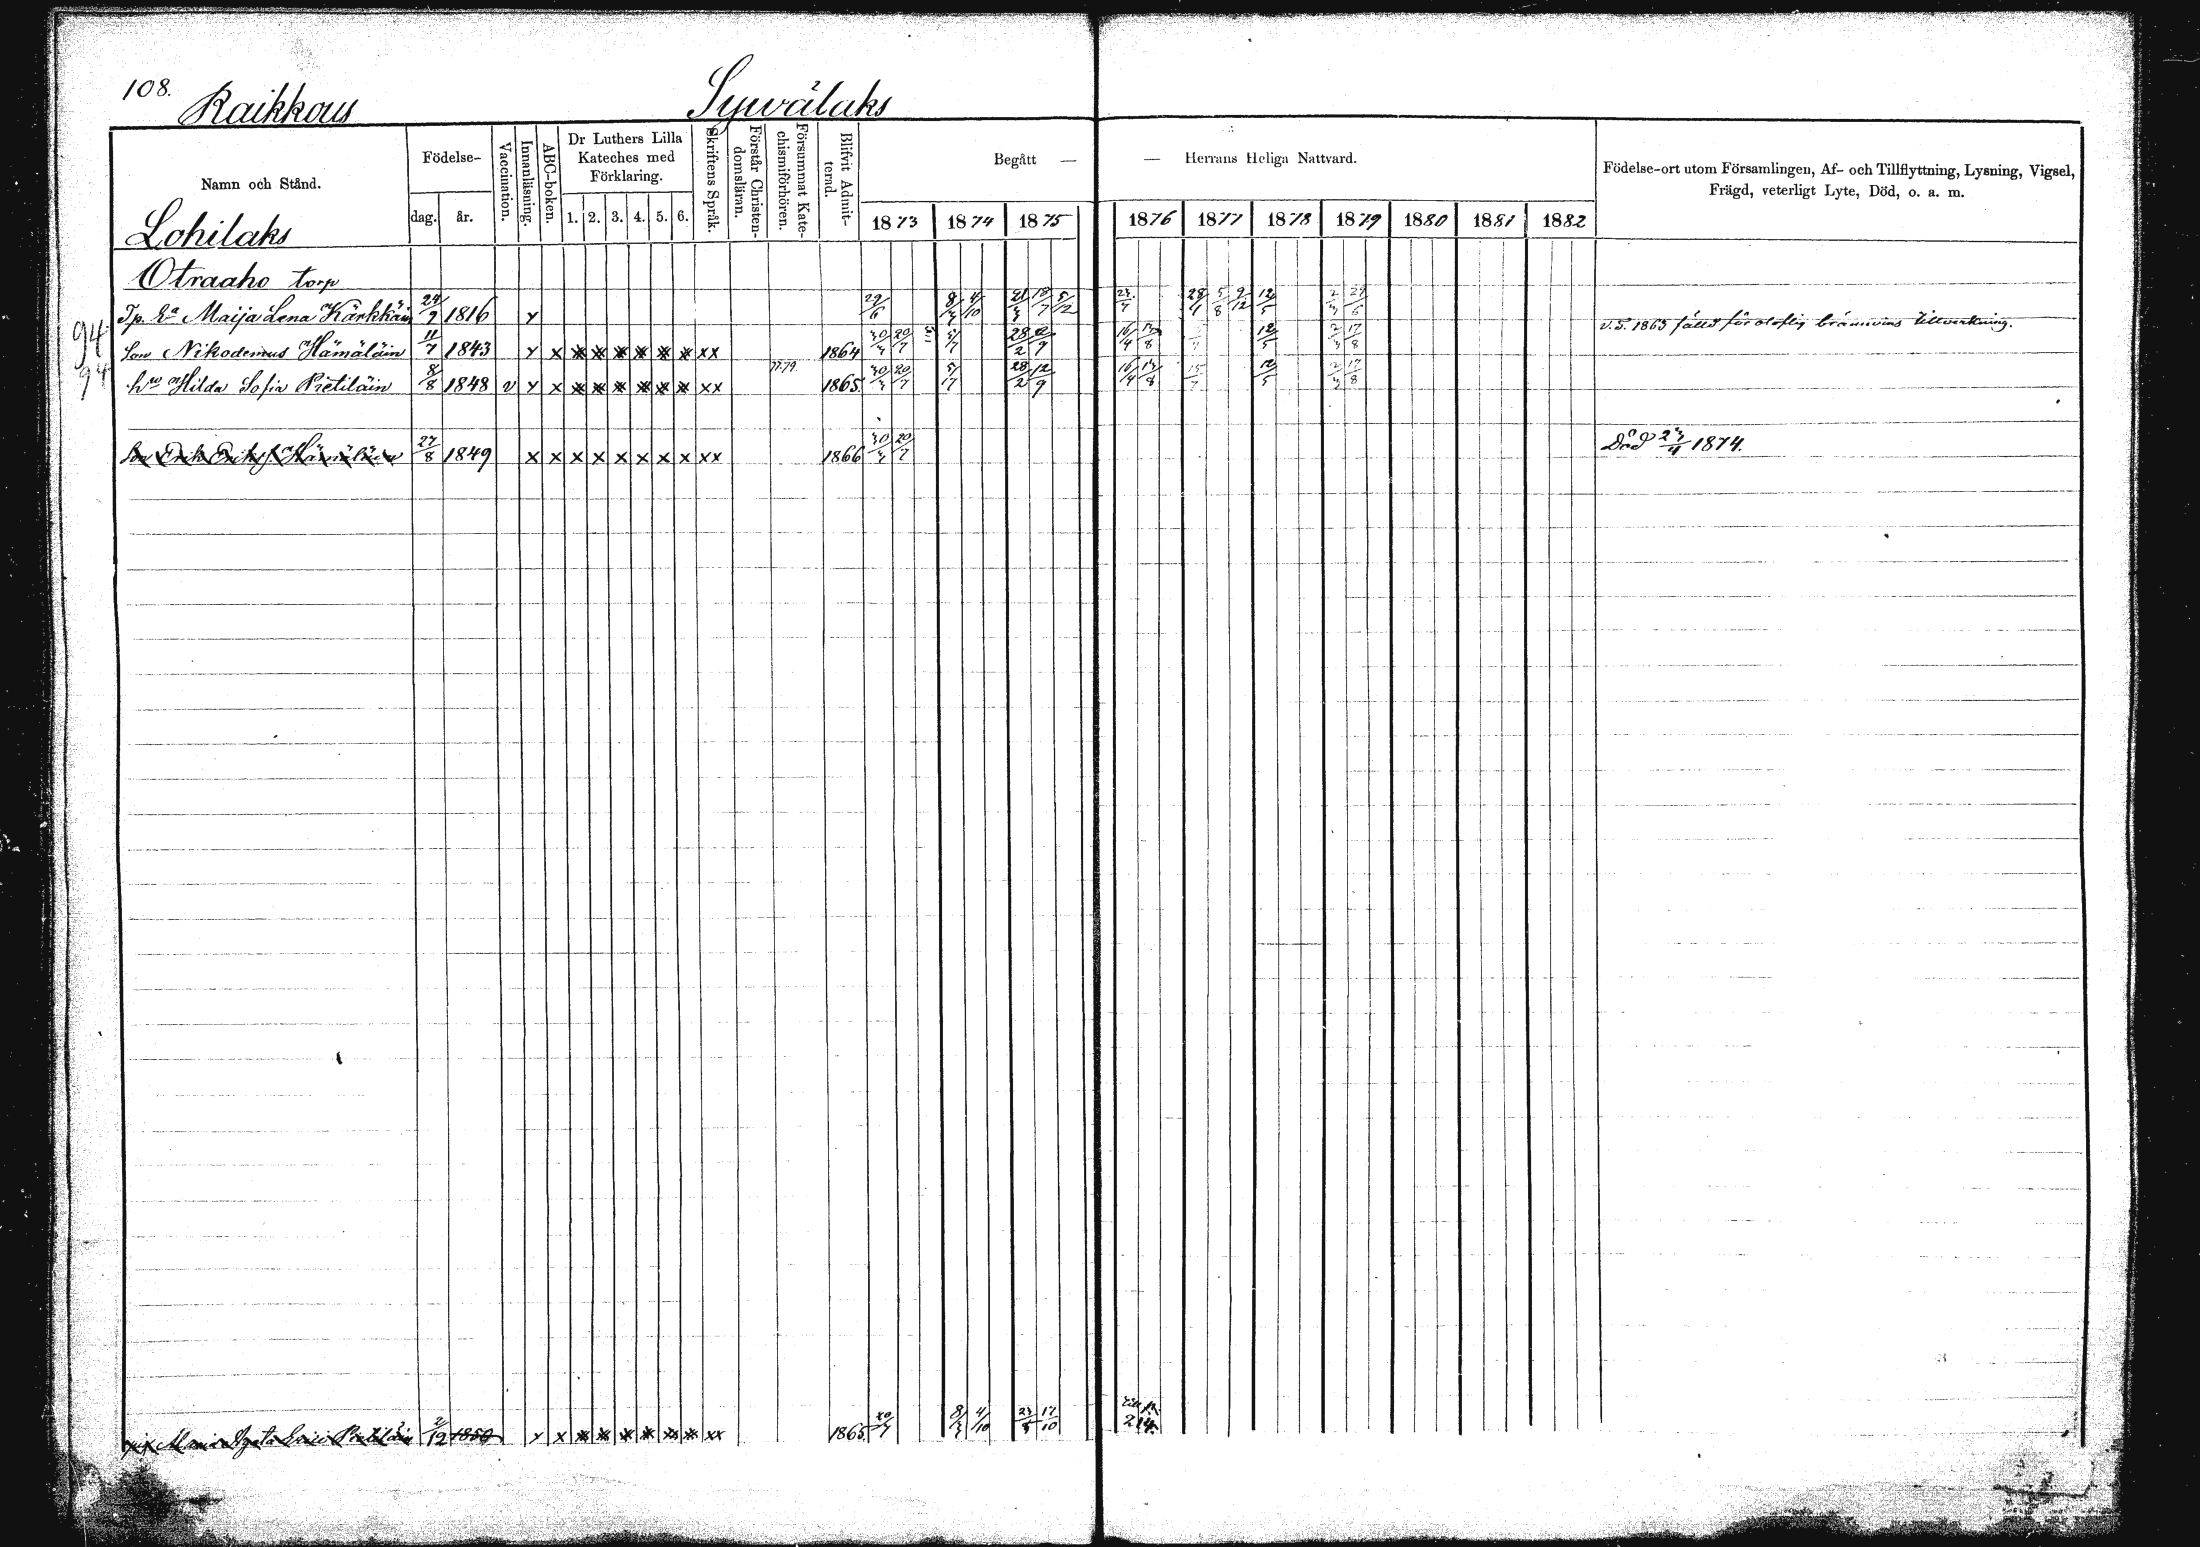 108. Raikkous Sywälaks
Namn och Stånd. Födelse- dag. år. Vaccination. Innanläsning. ABC-boken. Dr Luthers Lilla Kateches med Förklaring. 1. 2. 3. 4. 5. 6. Skriftens Språk. Förstår Christendomsläran. Försummat Katechismiförhören. Blifvit Admitterad. Begått — — Herrans Heliga Nattvard. Födelse-ort utom Församlingen, Af- och Tillflyttning, Lysning, Vigsel, Frägd, veterligt Lyte, Död, o. a. m.
1873 1874 1875 1876 1877 1878 1879 1880 1881 1882
Lohilaks
Otraaho torp
Tp. Ea Maija Lena Kärkkäin 24/9 1816 x 29/6 8/3 4/10 21/3 18/7 5/12 28/1 5/8 9/12 12/5
94 Son Nikodemus Hämäläin 11/7 1843 x x x x x x x x xx 1864 20/7 5/7 28/2 12/9 16/4 13/8 12/5 17/8 v. T. 1863 fälld för oloflig brännvins tillverkning.
94 hu Hilda Sofia Pietiläin 8/8 1848 v x x x x x x x x xx 77.79. 1865. 20/7 5/7 28/2 12/9 16/4 13/8 15/7 12/5 17/8
Son Erik Eriksf Hämäläin 27/8 1849 x x x x x x x x xx 1866 20/7 Död 23/4 1874.
pig Maria Agata Pietiläin 2/12 1850 x x x x x x x x xx 1865. 20/7 8/3 4/10 17/10 214